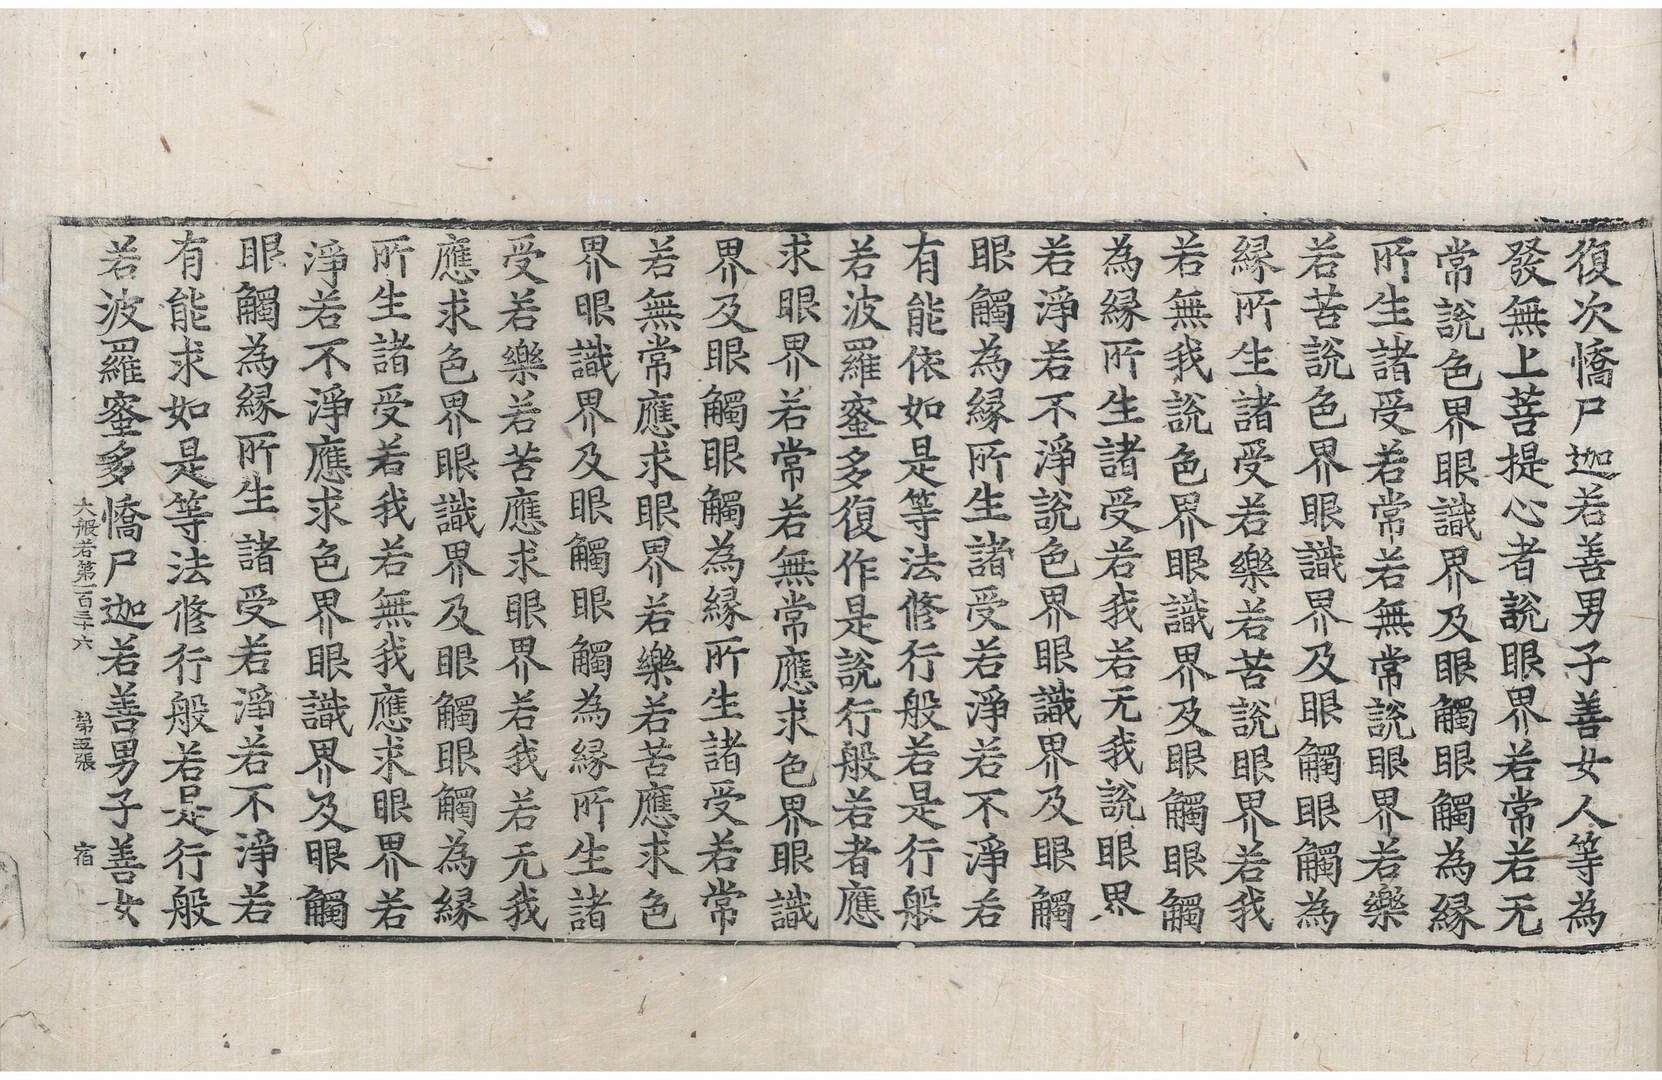 復次憍尸迦若善男子善女人等為
發無上菩提心者說眼界若常若无
常說色界眼識界及眼觸眼觸為縁
所生諸受若常若無常說眼界若樂
若苦說色界眼識界及眼觸眼觸為
縁所生諸受若樂若苦說眼界若我
若無我說色界眼識界及眼觸眼觸
為縁所生諸受若我若无我說眼界
若淨若不淨說色界眼識界及眼觸
眼觸為縁所生諸受若淨若不淨若
有能依如是等法修行般若是行般
若波羅蜜多復作是說行般若者應
求眼界若常若無常應求色界眼識
界及眼觸眼觸為縁所生諸受若常
若無常應求眼界若樂若苦應求色
界眼識界及眼觸眼觸為縁所生諸
受若樂若苦應求眼界若我若无我
應求色界眼識界及眼觸眼觸為縁
所生諸受若我若無我應求眼界若
淨若不淨應求色界眼識界及眼觸
眼觸為縁所生諸受若淨若不淨若
有能求如是等法修行般若是行般
若波羅蜜多憍尸迦若善男子善女
大般若第一百三十六 第五張 宿